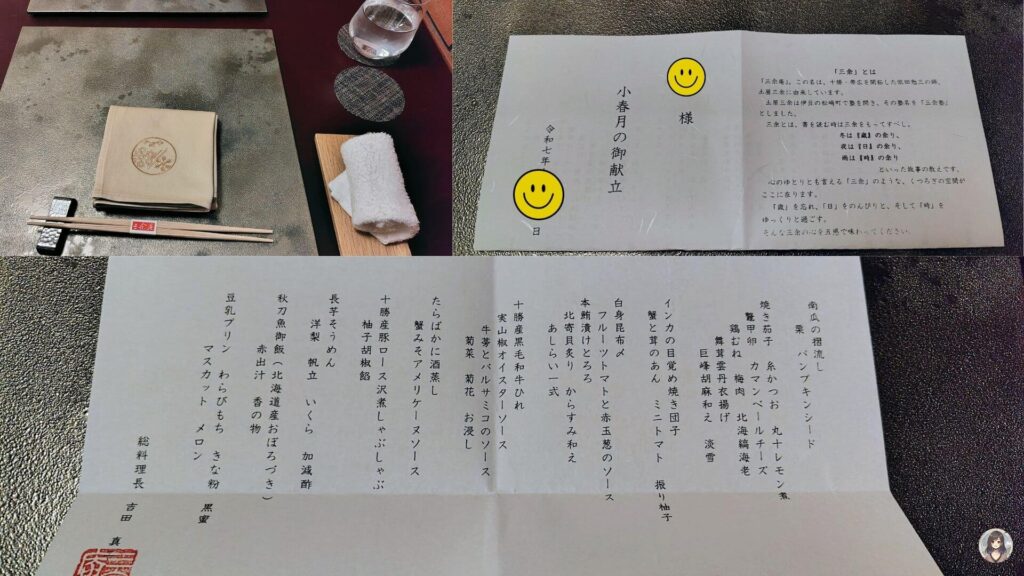 様
小春月の御献立
令和七年
日
「三余」とは
「三余庵」。この名は、十勝・帯広を開拓した依田勉三の師、
土屋三余に由来しています。
土屋三余は伊豆の松崎町で塾を開き、その塾名を「三余塾」
としました。
三余とは、書を読む時は三余をもってすべし。
冬は『歳』の余り、
夜は『日』の余り、
雨は『時』の余り
といった故事の教えです。
心のゆとりとも言える「三余」のような、くつろぎの空間が
ここに在ります。
「歳」を忘れ、「日」をのんびりと、そして「時」を
ゆっくりと過ごす。
そんな三余の心を五感で味わってください。
南瓜の摺流し
栗 パンプキンシード
焼き茄子 糸かつお 丸十レモン煮
鼈甲卵 カマンベールチーズ
鶏むね 梅肉 北海縞海老
舞茸雲丹衣揚げ
巨峰胡麻和え 淡雪
インカの目覚め焼き団子
蟹と茸のあん ミニトマト 振り柚子
白身昆布〆
フルーツトマトと赤玉葱のソース
本鮪漬けとろろ
北寄貝炙り からすみ和え
あしらい一式
十勝産黒毛和牛ひれ
実山椒オイスターソース
牛蒡とバルサミコのソース
菊菜 菊花 お浸し
たらばかに酒蒸し
蟹みそアメリケーヌソース
十勝産豚ロース沢煮しゃぶしゃぶ
柚子胡椒餡
長芋そうめん
洋梨 帆立 いくら 加減酢
秋刀魚御飯（北海道産おぼろづき）
赤出汁 香の物
豆乳プリン わらびもち きな粉 黒蜜
マスカット メロン
総料理長 吉田 真